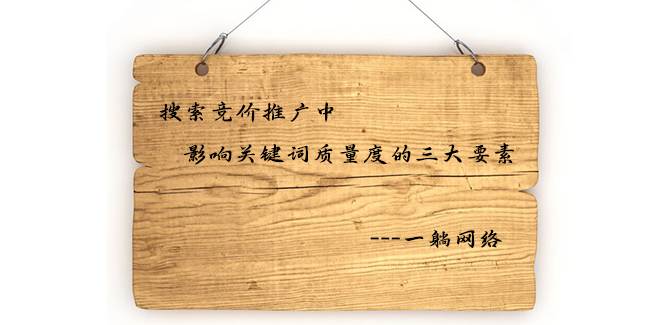 搜索竞价推广中
影响关键词质量度的三大要素
---一躺网络